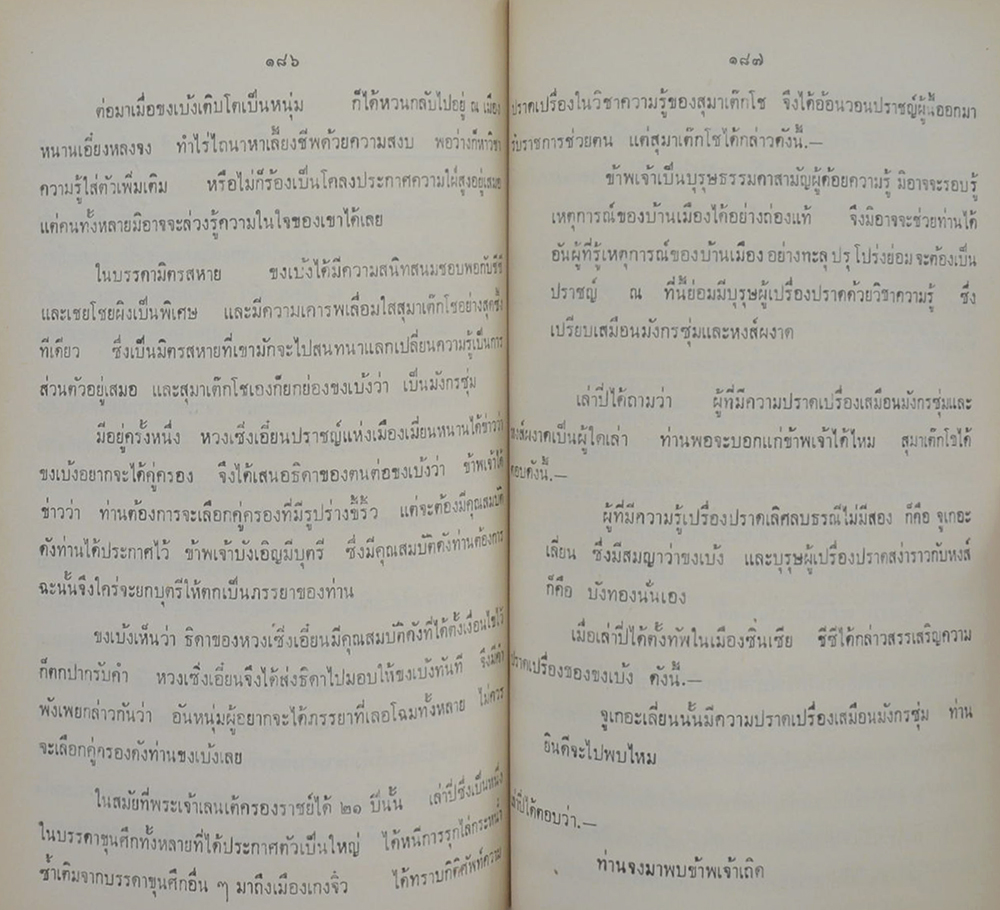 ๑๘๖
ต่อมาเมื่อขงเบ้งเติบโตเป็นหนุ่ม ก็ได้หวนกลับไปอยู่ ณ เมือง
หนานเอี๋ยงหลงจง ทำไร่ไถนาหาเลี้ยงชีพด้วยความสงบ พอว่างก็หาวิชา
ความรู้ใส่ตัวเพิ่มเติม หรือไม่ก็ร้องเป็นโคลงประกาศความใฝ่สูงอยู่เสมอ
แต่คนทั้งหลายมิอาจจะล่วงรู้ความในใจของเขาได้เลย
ในบรรดามิตรสหาย ขงเบ้งได้มีความสนิทสนมชอบพอกับชีซี
และเชยโชยผิงเป็นพิเศษ และมีความเคารพเลื่อมใสสุมาเต๊กโชอย่างสุดซึ้ง
ทีเดียว ซึ่งเป็นมิตรสหายที่เขามักจะไปสนทนาแลกเปลี่ยนความรู้เป็นการ
ส่วนตัวอยู่เสมอ และสุมาเต๊กโชเองก็ยกย่องขงเบ้งว่า เป็นมังกรซุ่ม
มีอยู่ครั้งหนึ่ง หวงเซิ่งเอี๋ยนปราชญ์แห่งเมืองเมี่ยนหนานได้ข่าวว่า
ขงเบ้งอยากจะได้คู่ครอง จึงได้เสนอธิดาของตนต่อขงเบ้งว่า ข้าพเจ้าได้
ข่าวว่า ท่านต้องการจะเลือกคู่ครองที่มีรูปร่างขี้ริ้ว แต่จะต้องมีคุณสมบัติ
ดังท่านได้ประกาศไว้ ข้าพเจ้าบังเอิญมีบุตรี ซึ่งมีคุณสมบัติดังท่านต้องการ
ฉะนั้นจึงใคร่จะยกบุตรีให้ตกเป็นภรรยาของท่าน
ขงเบ้งเห็นว่า ธิดาของหวงเซิ่งเอี๋ยนมีคุณสมบัติดังที่ได้ตั้งเงื่อนไขไว้
ก็ตกปากรับคำ หวงเซิ่งเอี๋ยนจึงได้ส่งธิดาไปมอบให้ขงเบ้งทันที จึงมีคำ
พังเพยกล่าวกันว่า อันหนุ่มผู้อยากจะได้ภรรยาที่เลอโฉมทั้งหลาย ไม่ควร
จะเลือกคู่ครองดังท่านขงเบ้งเลย
ในสมัยที่พระเจ้าเลนเต้ครองราชย์ได้ ๒๑ ปีนั้น เล่าปี่ซึ่งเป็นหนึ่ง
ในบรรดาขุนศึกทั้งหลายที่ได้ประกาศตัวเป็นใหญ่ ได้หนีการรุกไล่กระหน่ำ
ซ้ำเติมจากบรรดาขุนศึกอื่น ๆ มาถึงเมืองเกงจิ๋ว ได้ทราบกิตติศัพท์ความ
๑๘๗
ปราดเปรื่องในวิชาความรู้ของสุมาเต๊กโช จึงได้อ้อนวอนปราชญ์ผู้นี้ออกมา
รับราชการช่วยตน แต่สุมาเต๊กโชได้กล่าวดังนี้.—
ข้าพเจ้าเป็นบุรุษธรรมดาสามัญผู้ด้อยความรู้ มิอาจจะรอบรู้
เหตุการณ์ของบ้านเมืองได้อย่างถ่องแท้ จึงมิอาจจะช่วยท่านได้
อันผู้ที่รู้เหตุการณ์ของบ้านเมืองอย่างทะลุปรุโปร่งย่อมจะต้องเป็น
ปราชญ์ ณ ที่นี้ย่อมมีบุรุษผู้เปรื่องปราดด้วยวิชาความรู้ ซึ่ง
เปรียบเสมือนมังกรซุ่มและหงส์ผงาด
เล่าปี่ได้ถามว่า ผู้ที่มีความปราดเปรื่องเสมือนมังกรซุ่มและ
หงส์ผงาดเป็นผู้ใดเล่า ท่านพอจะบอกแก่ข้าพเจ้าได้ไหม สุมาเต๊กโชได้
ตอบดังนี้.—
ผู้ที่มีความรู้เปรื่องปราดเลิศลบธรณีไม่มีสอง ก็คือ จูเกอะ
เลี่ยน ซึ่งมีสมญาว่าขงเบ้ง และบุรุษผู้เปรื่องปราดสง่าราวกับหงส์
ก็คือ บังทองนั่นเอง
เมื่อเล่าปี่ได้ตั้งทัพในเมืองซินเซีย ชีซีได้กล่าวสรรเสริญความ
ปราดเปรื่องของขงเบ้ง ดังนี้.—
จูเกอะเลี่ยนนั้นมีความปราดเปรื่องเสมือนมังกรซุ่ม ท่าน
ยินดีจะไปพบไหม
เล่าปี่ได้ตอบว่า.—
ท่านจงมาพบข้าพเจ้าเถิด